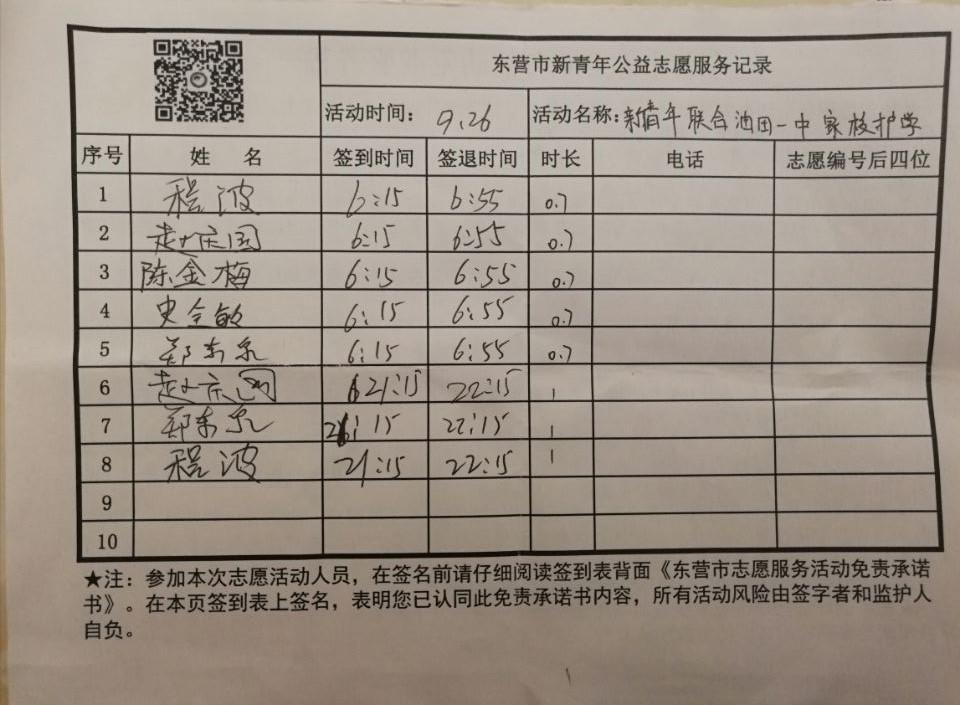 东营市新青年公益志愿服务记录
活动时间： 9.26 活动名称：新青年联合油田一中家校护学
序号 姓 名 签到时间 签退时间 时长 电话 志愿编号后四位
1 程波 6:15 6:55 0.7
2 赵庆国 6:15 6:55 0.7
3 陈金梅 6:15 6:55 0.7
4 史全敏 6:15 6:55 0.7
5 郑东泉 6:15 6:55 0.7
6 赵庆国 21:15 22:15 1
7 郑东泉 :15 22:15 1
8 程波 21:15 22:15 1
9
10
★注：参加本次志愿活动人员，在签名前请仔细阅读签到表背面《东营市志愿服务活动免责承诺
书》。在本页签到表上签名，表明您已认同此免责承诺书内容，所有活动风险由签字者和监护人
自负。